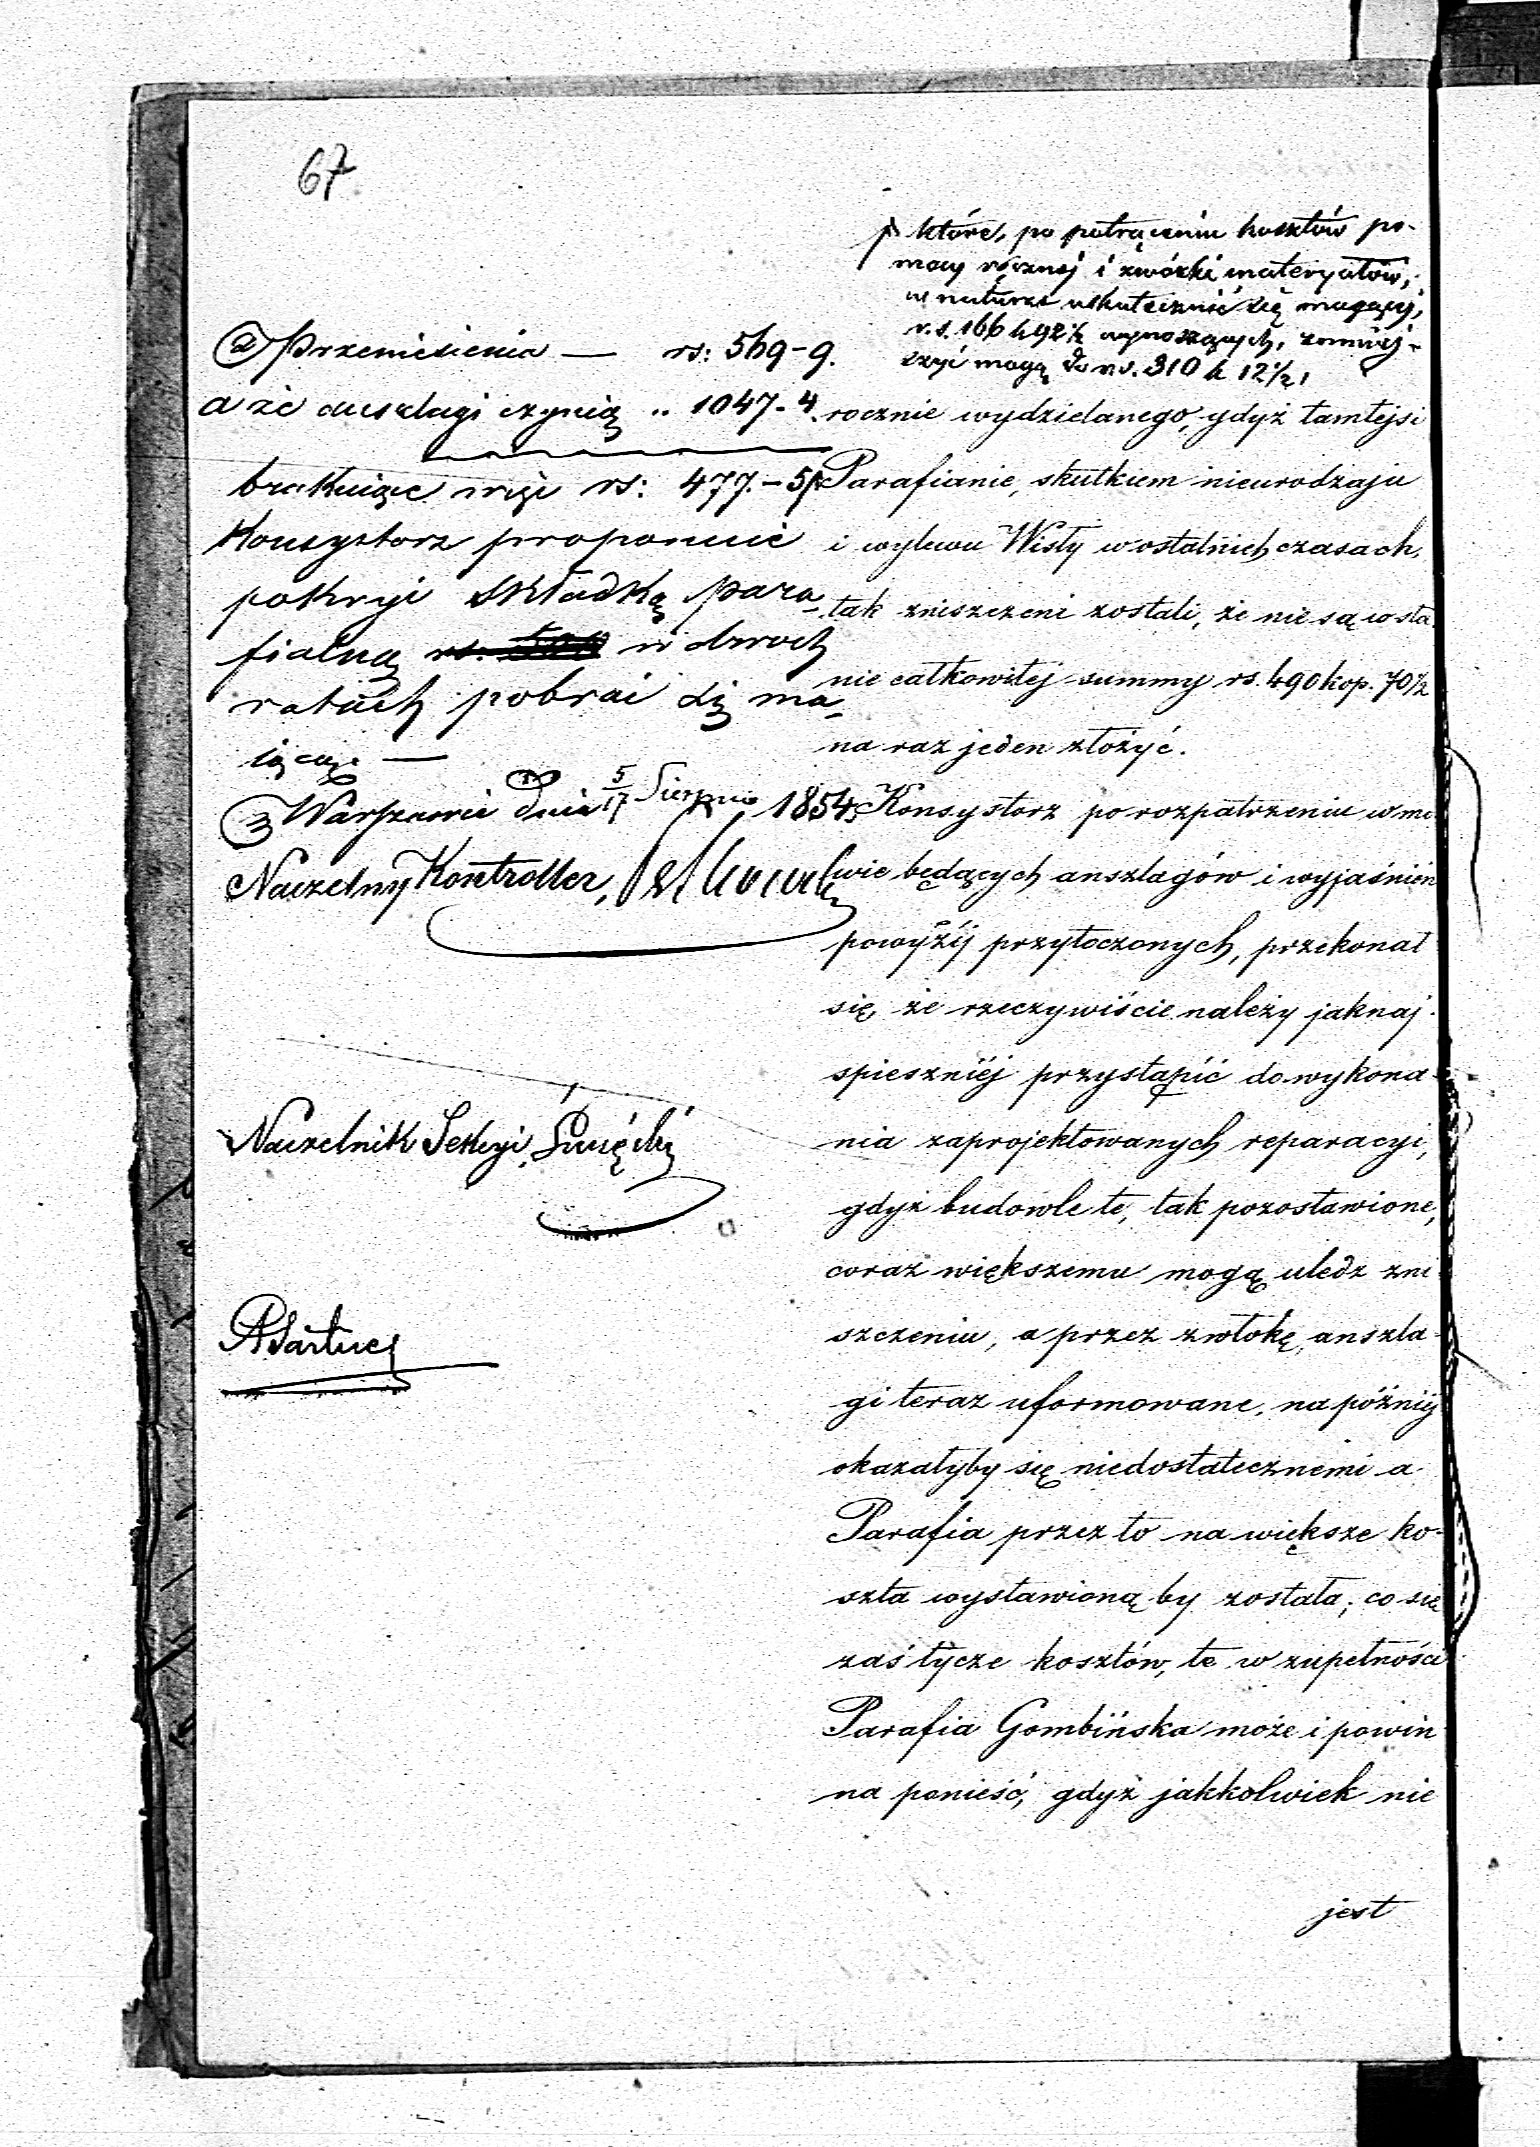 67
które, po potrąceniu kosztów po-
mocy ręcznej i zwózki materyałów,
w naturze uskutecznić się mogącej,
r.s. 166 k 92½ wynoszących, zmniej-
szyć mogą do r.s. 310 k 12½,
Przeniesienia — rs: 569-9.
a że anszlagi czynią „ 1047-4.
brakujące więc rs: 477.-5
Konsystorz proponuie
pokryć składką para-
fialną w dwóch
ratach pobrać się ma-
iącą —
Warszawie dnia 5/17 Sierpnia 1854.
Naczelny Kontroller,
Naczelnik Sekcyi
rocznie wydzielanego, gdyż tamtejsi
Parafianie, skutkiem nieurodzaju
i wylewu Wisły w ostatnich czasach,
tak zniszczeni zostali, że nie są w sta
nie całkowitej summy rs. 490 kop. 70½
na raz jeden złożyć.
Konsystorz po rozpatrzeniu w mo
wie będących anszlagów i wyjaśnień
powyżej przytoczonych, przekonał
się, że rzeczywiście należy jaknaj-
spieszniej przystąpić do wykona-
nia zaprojektowanych reparacyi,
gdyż budowle te, tak pozostawione,
coraz większemu mogą uledz zni
szczeniu, a przez zwłokę, anszla-
gi teraz uformowane, na później
okazałyby się niedostatecznemi a
Parafia przez to na większe ko-
szta wystawioną by została; co się
zaś tycze kosztów, te w zupełności
Parafia Gombińska może i powin
na ponieść, gdyż jakkolwiek nie
jest